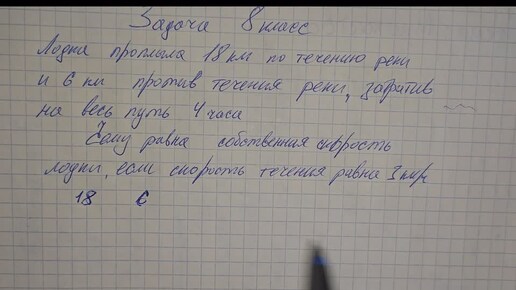 Задача 8 класс
Лодка проплыла 18 км по течению реки
и 6 км против течения реки, затратив
на весь путь 4 часа
Чему равна собственная скорость
лодки, если скорость течения равна 3 км/ч
18 6